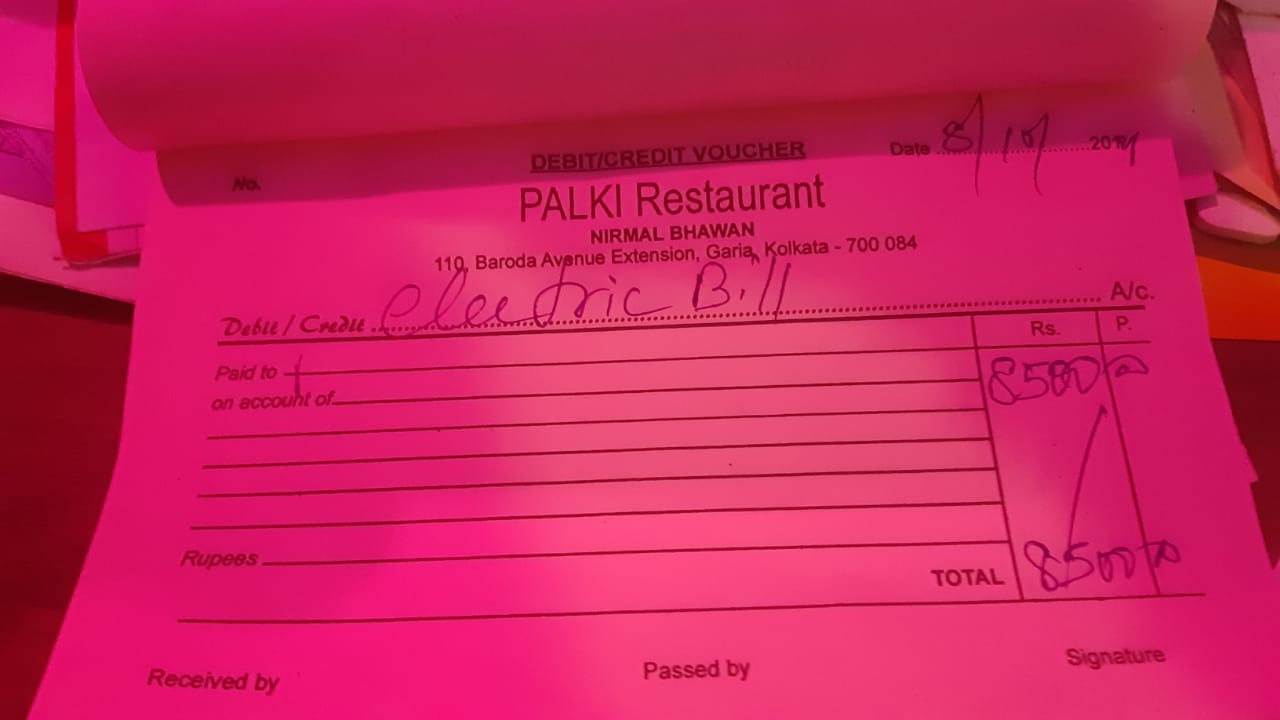 DEBIT/CREDIT VOUCHER
No. Date 8/10/
PALKI Restaurant
NIRMAL BHAWAN
110, Baroda Avenue Extension, Garia, Kolkata - 700 084
Debit / Credit electric Bill A/c.
Rs. P.
Paid to 8500 00
on account of
Rupees
TOTAL 8500 00
Received by Passed by Signature